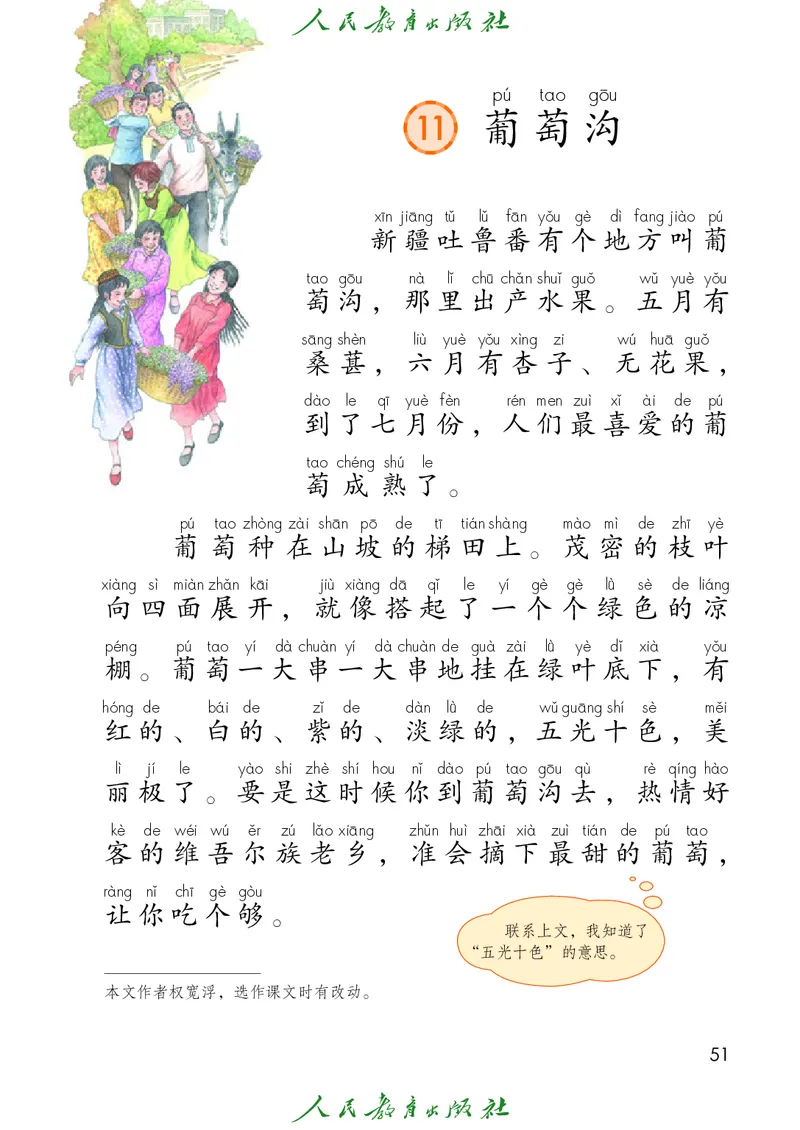 人民教育出版社
pú tao gōu
11 葡萄沟
xīn jiāng tǔ lǔ fān yǒu gè dì fang jiào pú
新疆吐鲁番有个地方叫葡
tao gōu nà lǐ chū chǎn shuǐ guǒ wǔ yuè yǒu
萄沟，那里出产水果。五月有
sāng shèn liù yuè yǒu xìng zi wú huā guǒ
桑葚，六月有杏子、无花果，
dào le qī yuè fèn rén men zuì xǐ ài de pú
到了七月份，人们最喜爱的葡
tao chéng shú le
萄成熟了。
pú tao zhòng zài shān pō de tī tián shàng mào mì de zhī yè
葡萄种在山坡的梯田上。茂密的枝叶
xiàng sì miàn zhǎn kāi jiù xiàng dā qǐ le yí gè gè lǜ sè de liáng
向四面展开，就像搭起了一个个绿色的凉
péng pú tao yí dà chuàn yí dà chuàn de guà zài lǜ yè dǐ xià yǒu
棚。葡萄一大串一大串地挂在绿叶底下，有
hóng de bái de zǐ de dàn lǜ de wǔ guāng shí sè měi
红的、白的、紫的、淡绿的，五光十色，美
lì jí le yào shi zhè shí hou nǐ dào pú tao gōu qù rè qíng hào
丽极了。要是这时候你到葡萄沟去，热情好
kè de wéi wú ěr zú lǎo xiāng zhǔn huì zhāi xià zuì tián de pú tao
客的维吾尔族老乡，准会摘下最甜的葡萄，
ràng nǐ chī gè gòu
让你吃个够。
联系上文，我知道了
“五光十色”的意思。
本文作者权宽浮，选作课文时有改动。
51
人民教育出版社